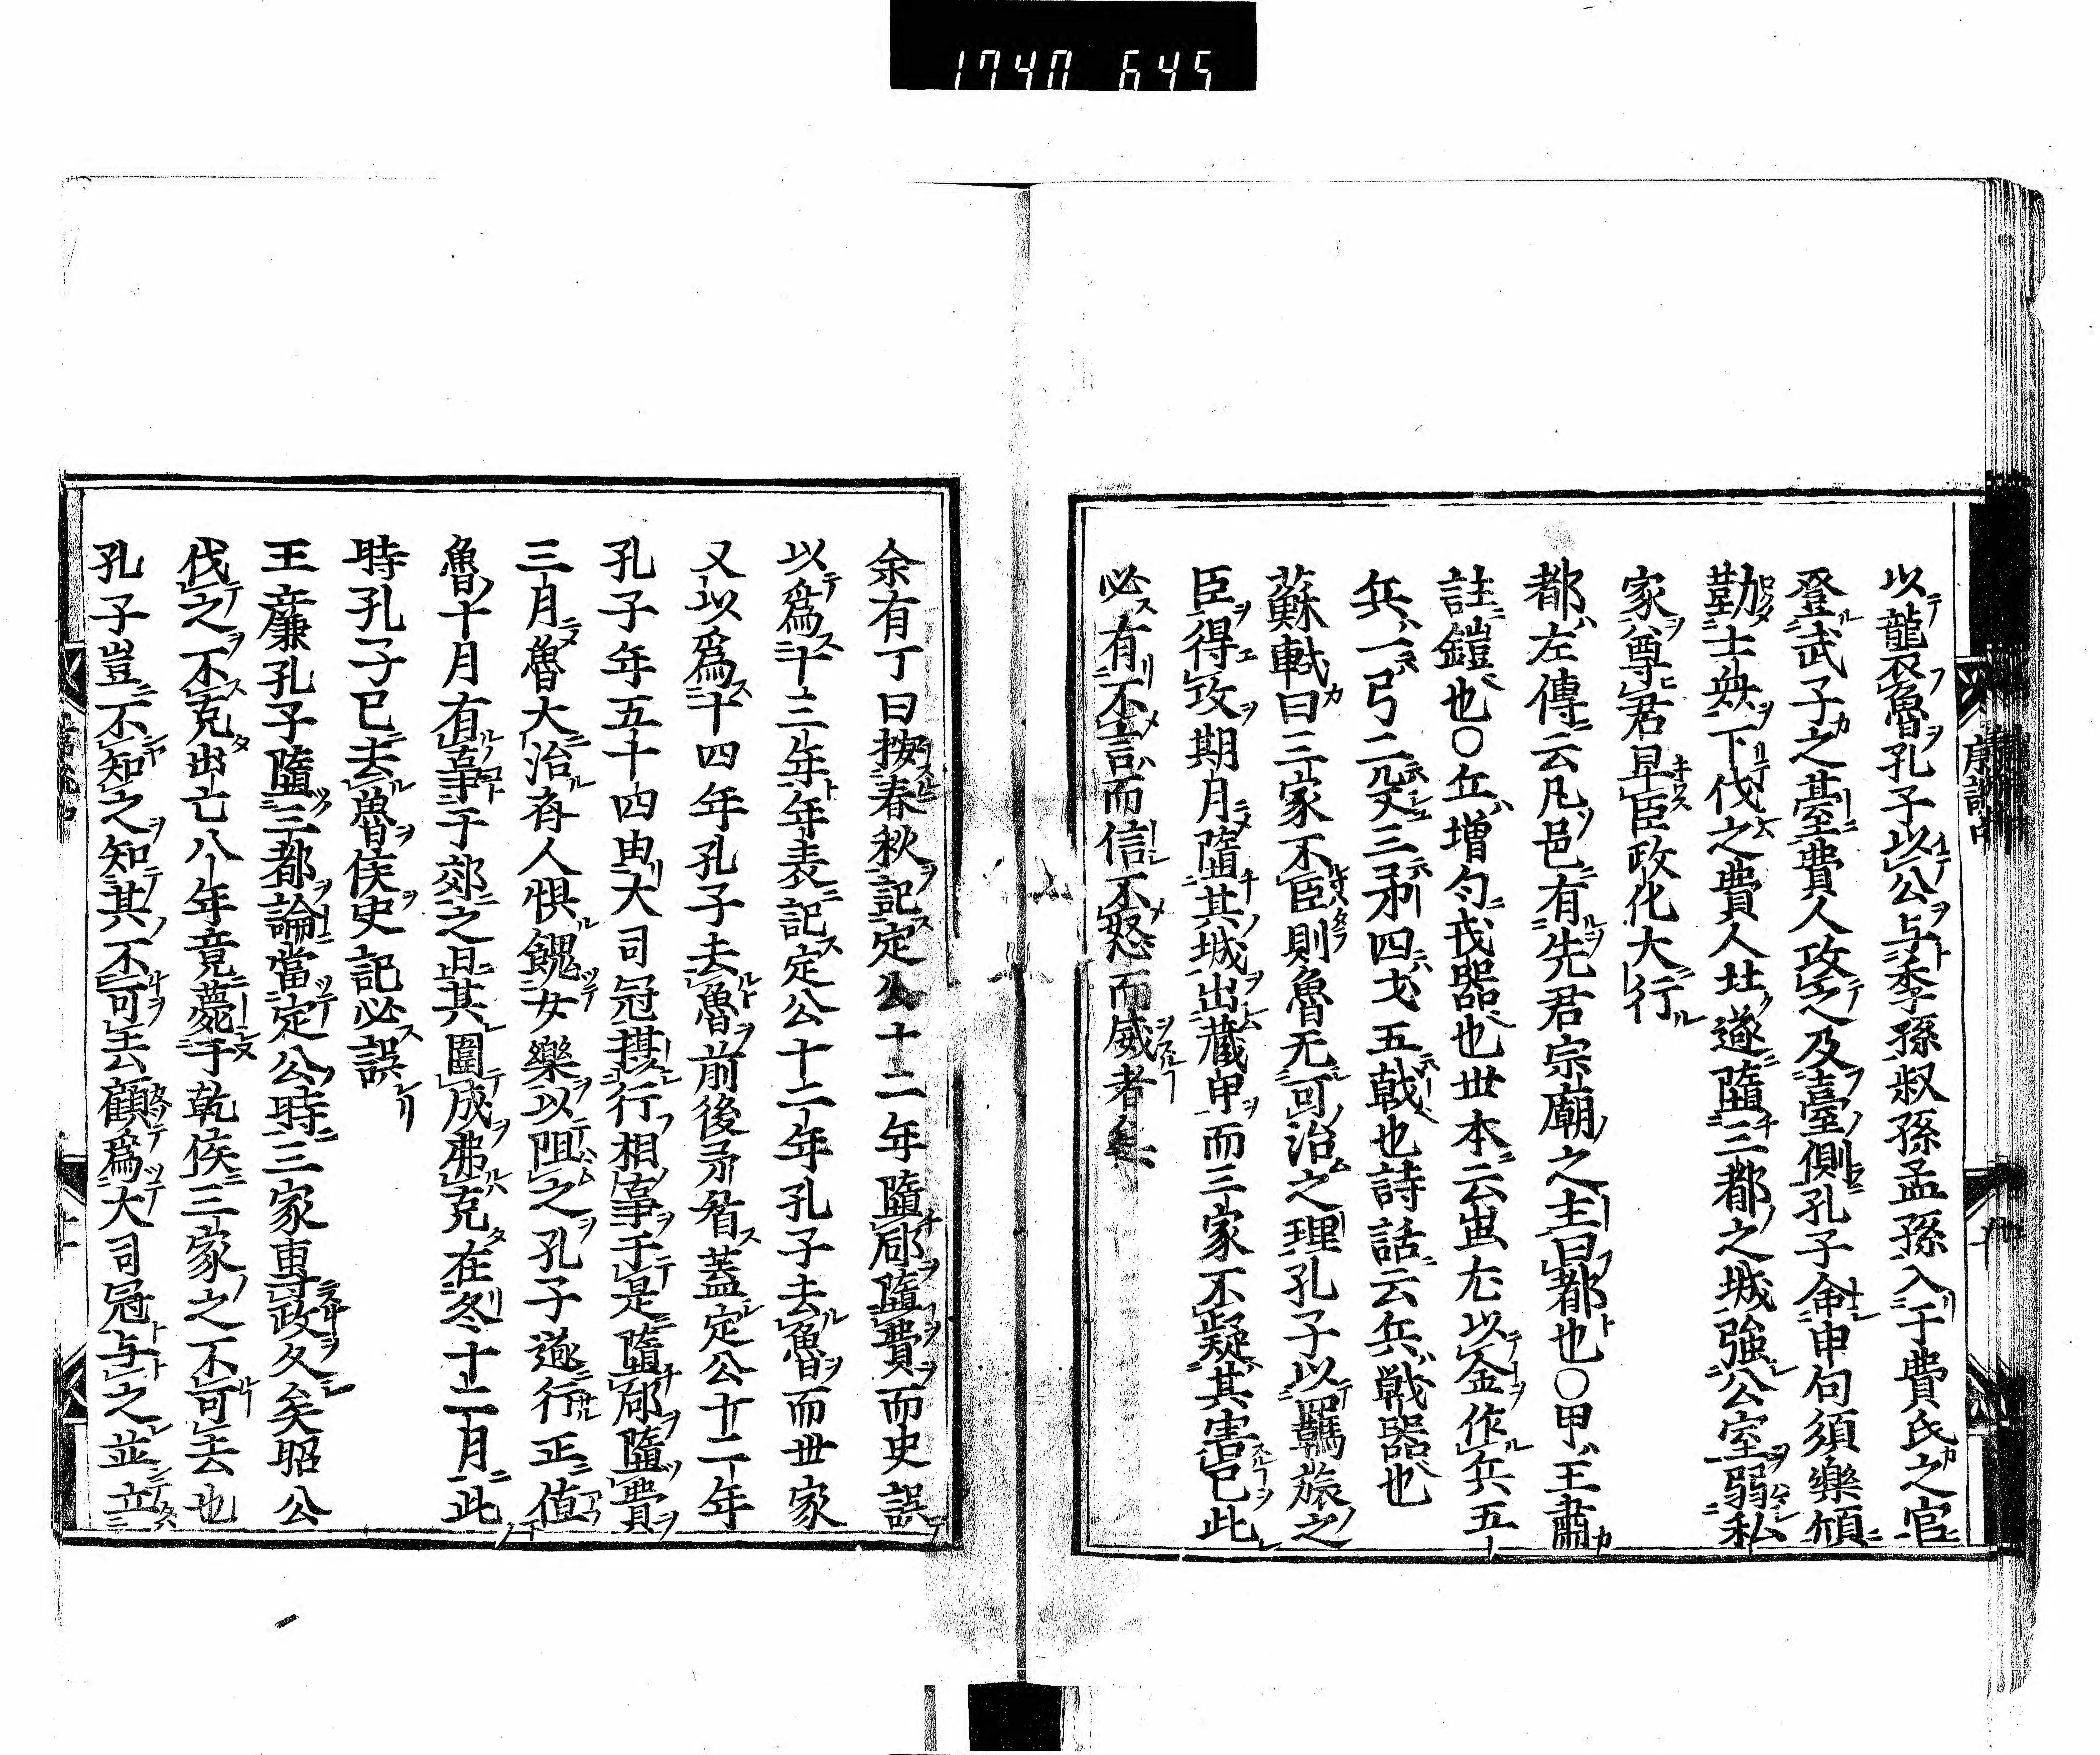 1740 645
序説中
以龍襲魯孔子以公与季孫叔孫孟孫入于費氏之宮
登武子之䑓費人攻之及臺側孔子命申句須樂頎
勒士衆下伐之費人北遂隳三都之城強公室弱私
家尊君卑臣政化大行
都左傳云凡邑有先君宗廟之主曰都也〇甲王肅
註鎧也〇丘増勻戎器也世本云蚩尤以金作兵五
兵一弓二殳三矛四戈五戟也詩話云兵戦器也
蘇軾曰三家不臣則魯无可治之理孔子以羈旅之
臣得攻期月隳其城出藏甲而三家不疑其害已此
必有不言而信不怒而威者矣
余有丁曰按春秋記定公十二年隳郈隳費而史誤
以爲十三年年表記定公十二年孔子去魯而世家
又以爲十四年孔子去魯前後矛盾蓋定公十二年
孔子年五十四由大司冦摂行相事于是隳郈隳費
三月魯大治斉人惧餽女樂以阻之孔子遂行正值
魯十月有事于郊之日其圍成弗克在冬十二月此
時孔子已去魯矦史記必誤
王廉孔子隳三都論當定公時三家專政久矣昭公
伐之不克出亡八年竟薨于乾侯三家之不可去也
孔子豈不知之知其不可去顧爲大司冦与之並立